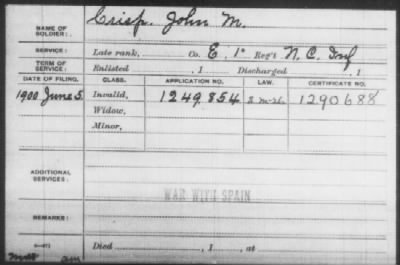 NAME OF SOLDIER: Crisp, John M.
SERVICE: Late rank, Co. E, 1st Reg't N.C. Inf
TERM OF SERVICE: Enlisted , 1 Discharged , 1
DATE OF FILING. CLASS. APPLICATION NO. LAW. CERTIFICATE NO.
1900 June 5. Invalid, 1249,854 1290688
Widow,
Minor,
ADDITIONAL SERVICES:
WAR WITH SPAIN
REMARKS:
Died , 1 , at